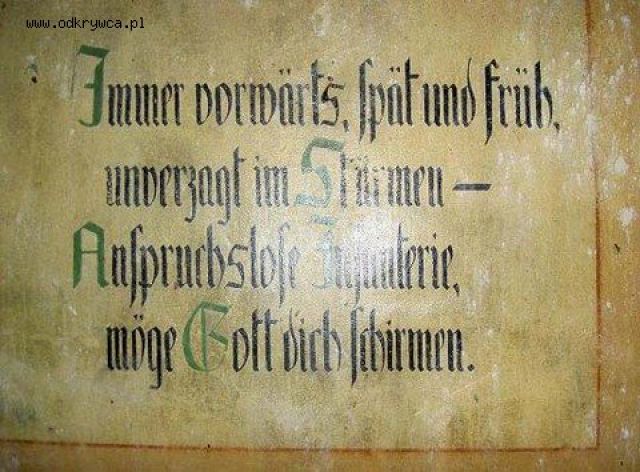 www.odkrywca.pl
Immer vorwärts, spät und früh,
unverzagt im Stürmen –
Anspruchslose Infanterie,
möge Gott dich schirmen.